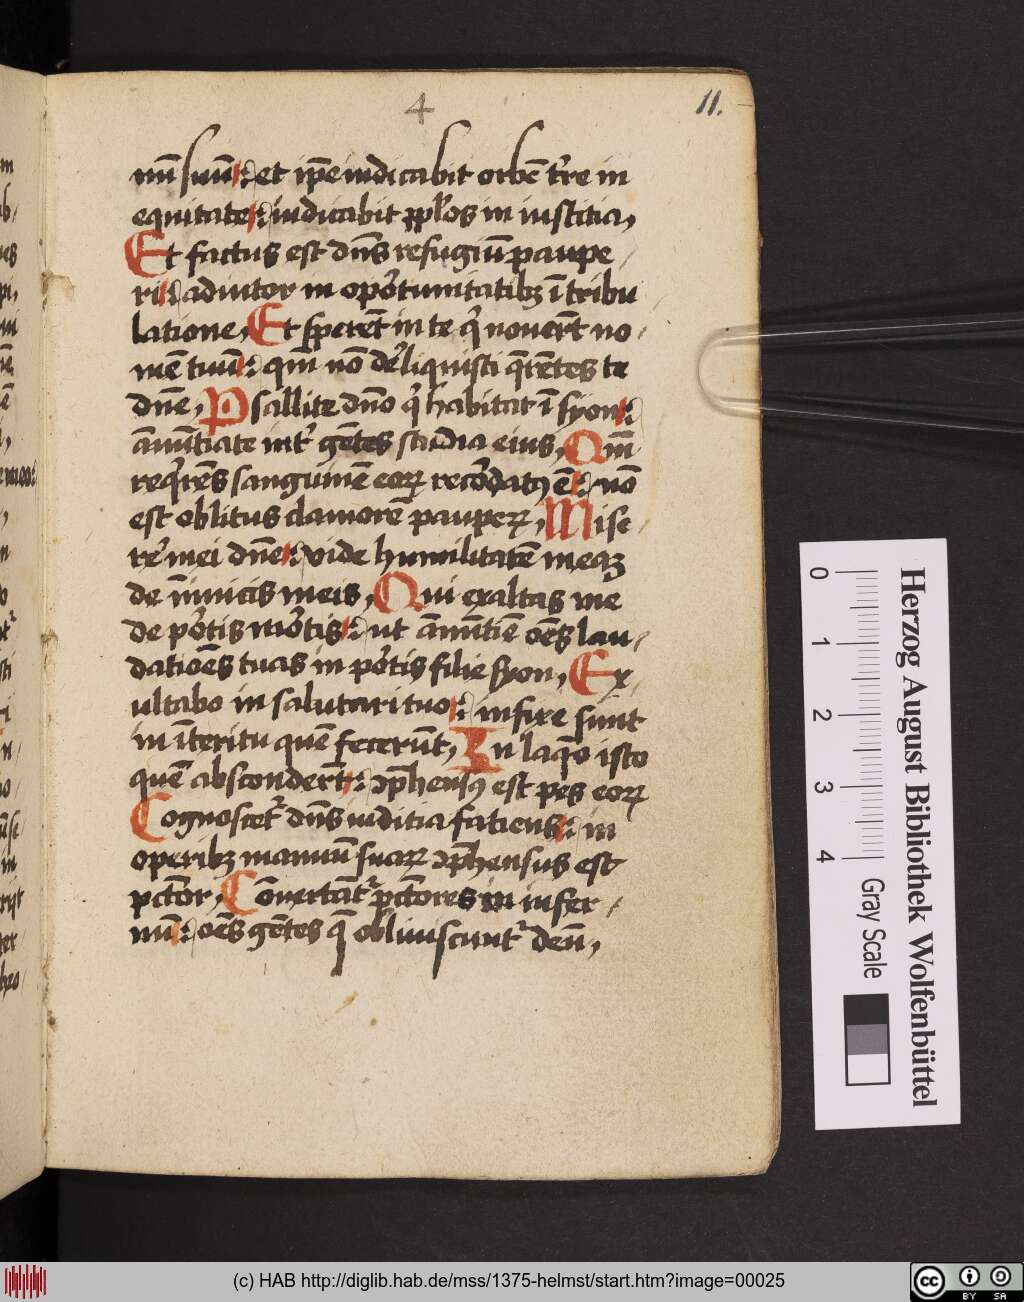 4
11.
nū suū : et ip̄e iudicabit orbē t̄re in
equitate : iudicabit ppl̄os in iusticia,
Et factus est dn̄s refugiū paupe /
ri : adiutor in oportunitatibꝫ ī tribu
latione, Et sperēt in te qͥ nouer̄t no /
mē tuū : qm̄ nō dēliquisti q̄rētes te
dn̄e, Psallite dn̄o qͥ habitat ī syon :
ānūtiate int̉ gētes studia eius, Qm̄
reqͥrēs sanguinē eoꝝ recordatꝰ ē : nō
est oblitus clamorē pauperꝝ, Mise /
rẻ mei dn̄e : vide humilitatē meaꝫ
de īnimicis meis, Qui exaltas me
de portis mortis : ut ānūtiē oēs lau /
datiōes tuas in portis filie syon, Ex /
ultabo in salutari tuo : infixe sunt
in īteritu quē fecerūt, In laq̄o isto
quē absconder̄t : ꝯp̄hensꝰ est pes eoꝝ
Cognoscet̉ dn̄s iudicia faciens : in
operibꝫ manuū suaꝝ ꝯp̄hensus est
pctōr, Cōuertāt̉ pctōres in infer /
nū : oēs gētes q̄ obliuiscunt̉ deū,
0
1
2
3
4
Gray Scale
Herzog August Bibliothek Wolfenbüttel
(c) HAB http://diglib.hab.de/mss/1375-helmst/start.htm?image=00025
cc BY SA